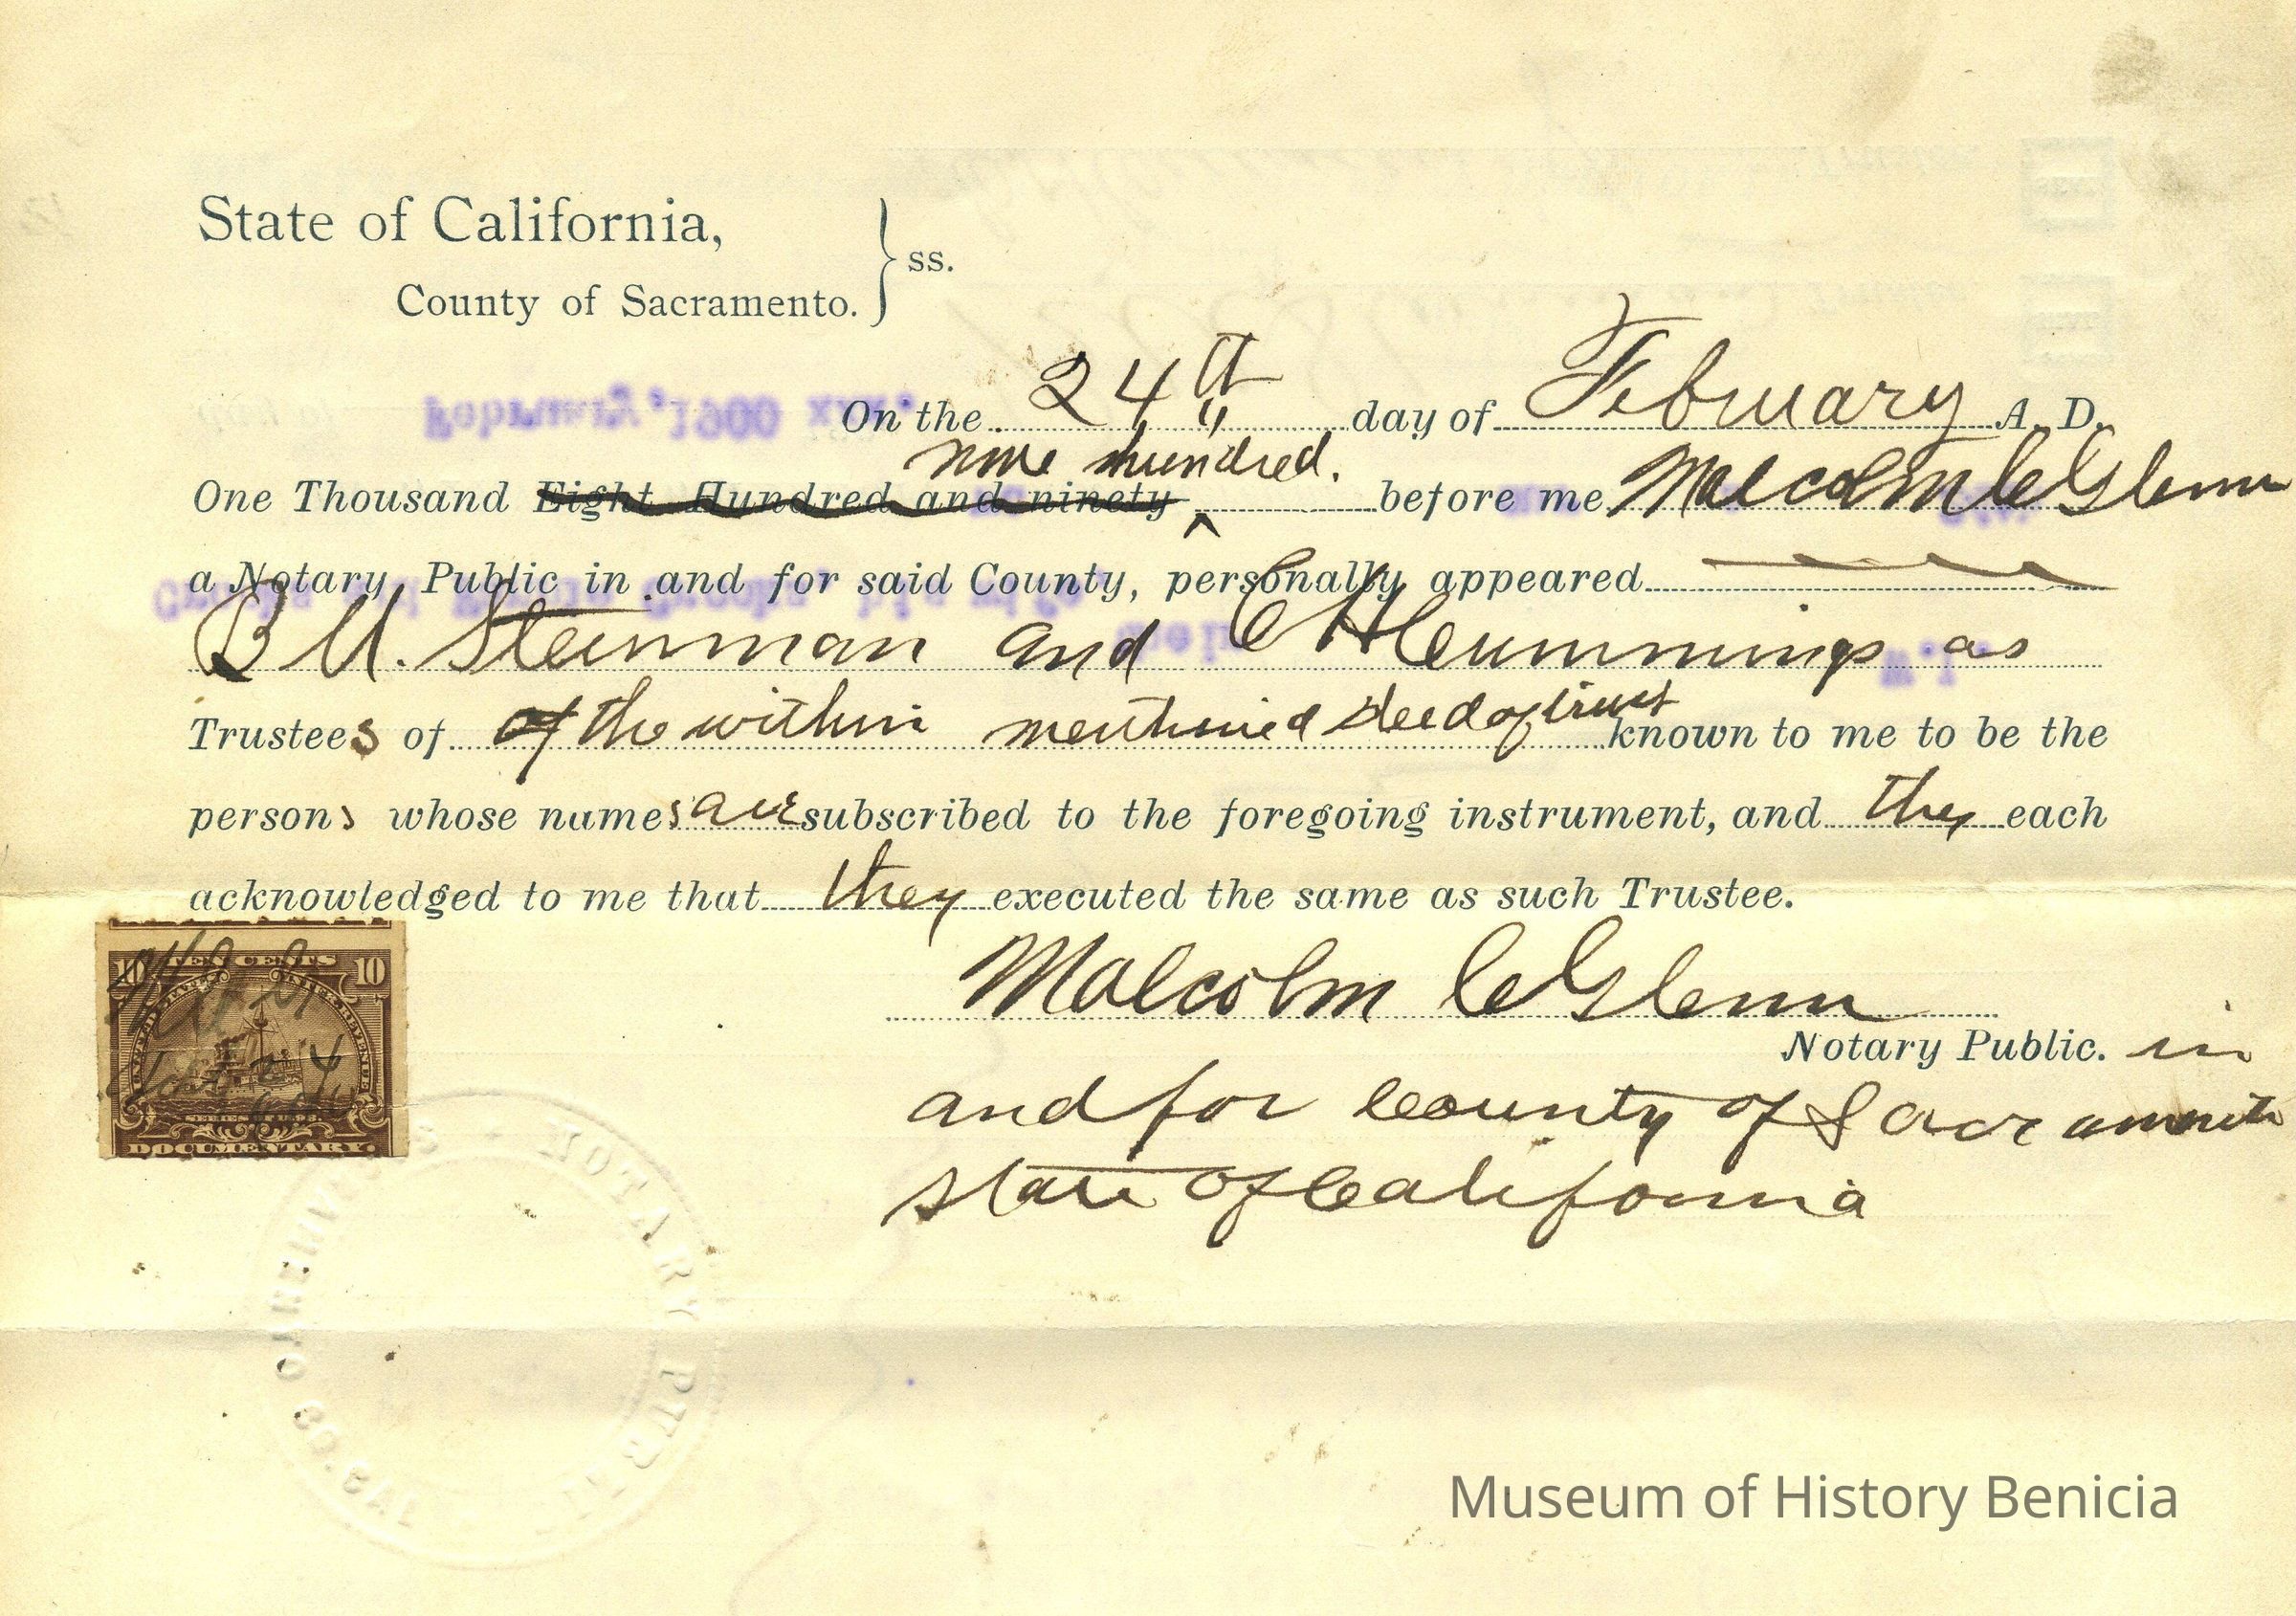 State of California,
County of Sacramento. } ss.
February, 1900
On the 24th day of February A. D.
nine hundred.
One Thousand Eight Hundred and ninety ^ before me Malcolm C Glenn
a Notary Public in and for said County, personally appeared
B U. Steinman and C H Cummings as
Trustees of of the within mentioned deed of trust known to me to be the
persons whose names are subscribed to the foregoing instrument, and they each
acknowledged to me that they executed the same as such Trustee.
10 TEN CENTS 10
DOCUMENTARY
Malcolm C Glenn
Notary Public. in
and for County of Sacramento
State of California
NOTARY PUBLIC
SACRAMENTO CO. CAL
Museum of History Benicia